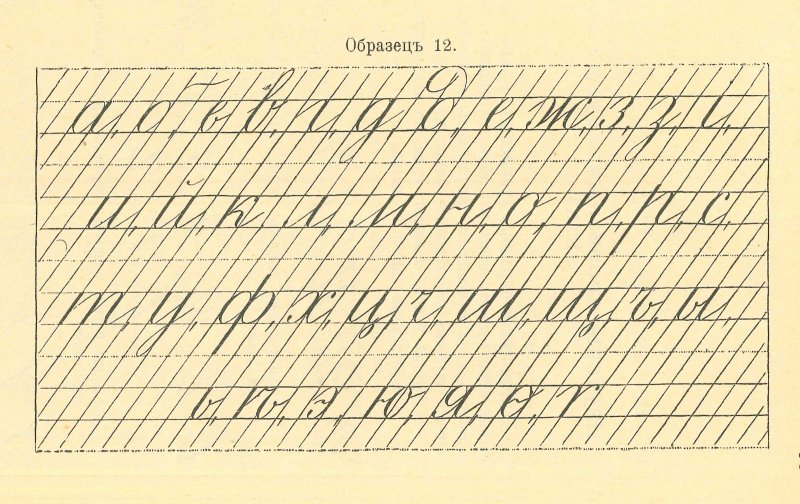 Образецъ 12.
а, б, в, в, г, д, д, е, ж, з, з, і,
и, й, к, л, м, н, о, п, р, с,
т, у, ф, х, ц, ч, ш, щ, ъ, ы,
ь, ѣ, э, ю, я, ѳ, ѵ